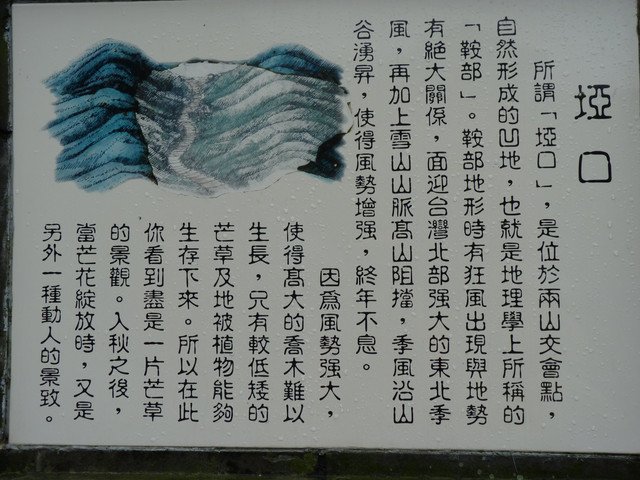 埡口
所謂「埡口」，是位於兩山交會點，
自然形成的凹地，也就是地理學上所稱的
「鞍部」。鞍部地形時有狂風出現與地勢
有絕大關係，面迎台灣北部强大的東北季
風，再加上雪山山脈高山阻擋，季風沿山
谷湧昇，使得風勢增强，終年不息。
因為風勢强大，
使得高大的喬木難以
生長，只有較低矮的
芒草及地被植物能夠
生存下來。所以在此
你看到盡是一片芒草
的景觀。入秋之後，
當芒花綻放時，又是
另外一種動人的景致。